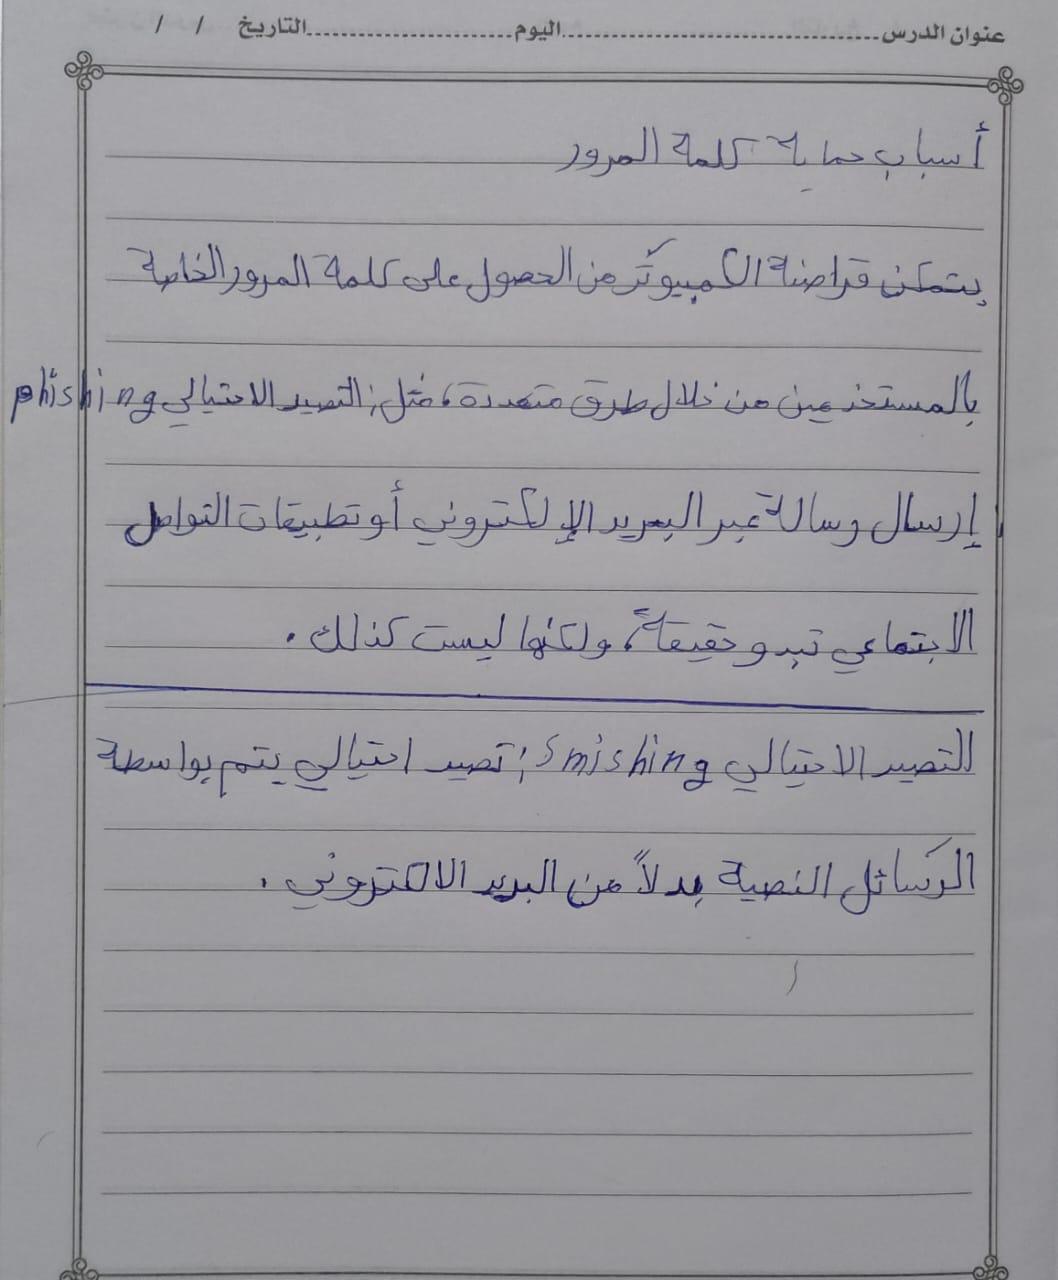 عنوان الدرس................................................اليوم................................التاريخ / /
أسباب حماية كلمة المرور
يتمكن قراصنة الكمبيوتر من الحصول على كلمة المرور الخاصة
بالمستخدمين من خلال طرق متعددة، مثل: التصيد الاحتيالي phishing
إرسال رسالة عبر البريد الإلكتروني أو تطبيقات التواصل
الاجتماعي تبدو حقيقة، ولكنها ليست كذلك.
التصيد الاحتيالي Smishing: تصيد احتيالي يتم بواسطة
الرسائل النصية بدلاً من البريد الالكتروني.